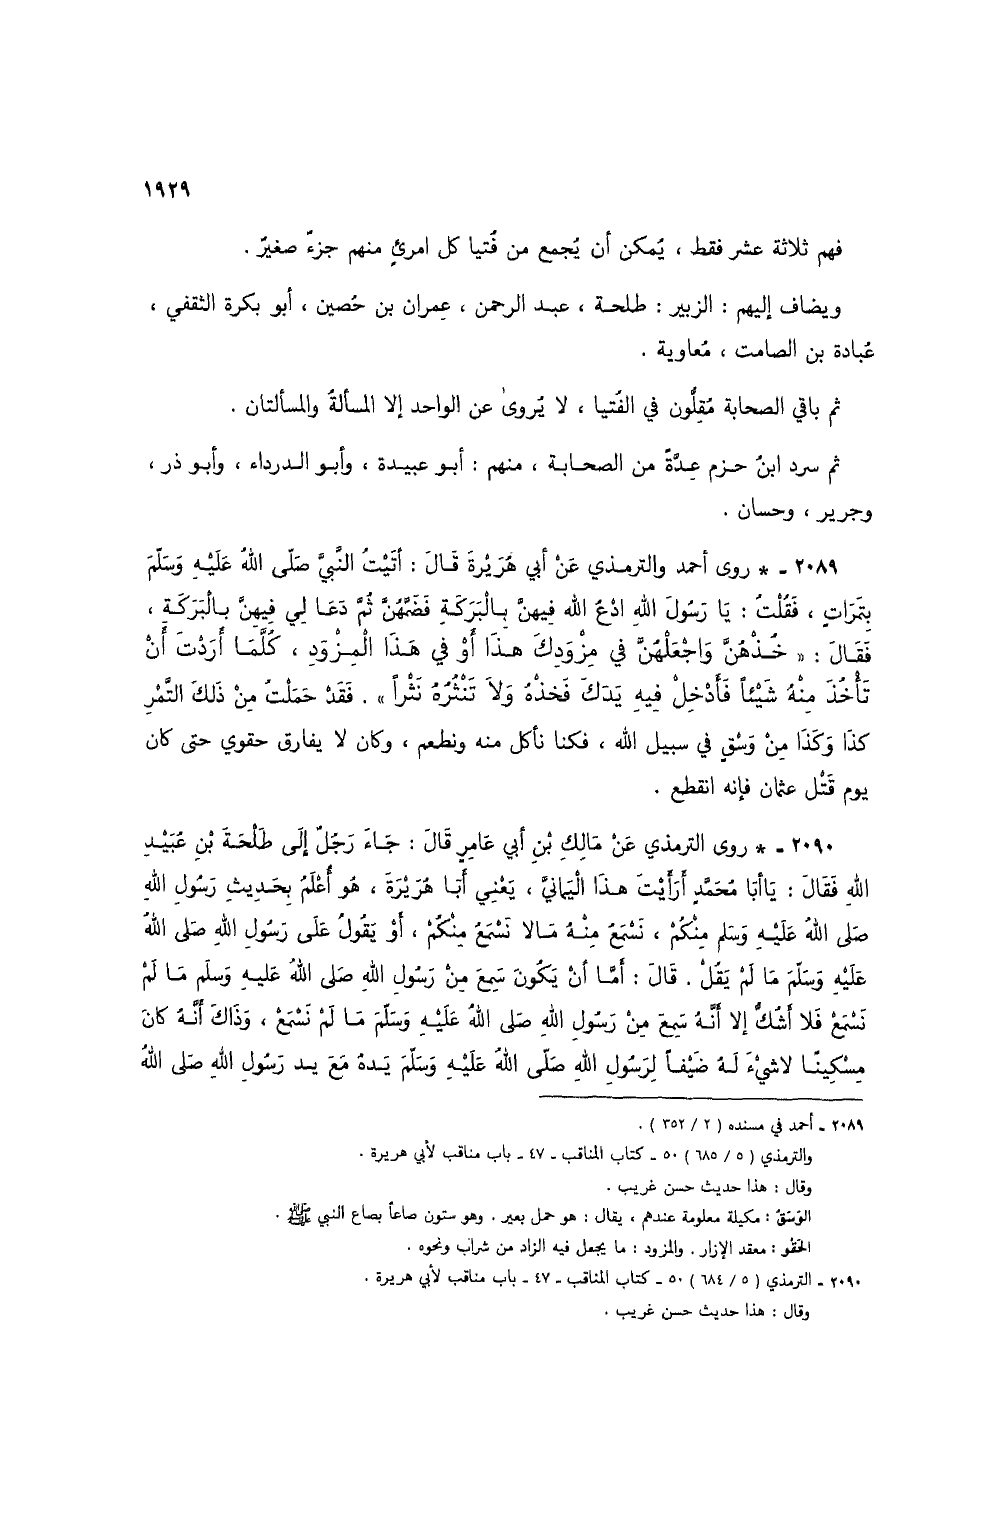 ١٩٢٩
فهم ثلاثة عشر فقط ، يُمكن أن يُجمع من فُتيا كل امرئٍ منهم جزءٌ صغيرٌ .
ويضاف إليهم : الزبير : طلحـة ، عبـد الرحمن ، عِمران بن حُصين ، أبو بكرة الثقفي ،
عُبادة بن الصامت ، مُعاوية .
ثم باقي الصحابة مُقِلُّون في الفُتيا ، لا يُروىٰ عن الواحد إلا المسألةُ والمسألتان .
ثم سرد ابنُ حـزم عِـدَّةً من الصحـابـة ، منهم : أبـو عبيـدة ، وأبـو الـدرداء ، وأبـو ذر ،
وجرير ، وحسان .
٢٠٨٩ ـ * روى أحمد والترمـذي عَنْ أبي هُرَيْرةَ قَـالَ : أتَيْتُ النَّبِيَّ صَلّى اللهُ عَلَيْـهِ وَسَلّمَ
بِتَمَرَاتٍ ، فَقُلْتُ : يَا رَسُولَ اللهِ ادْعُ الله فِيهنَّ بِـالْبَرَكَـةِ فَضَمَّهُنَّ ثُمَّ دَعَـا لِي فِيهِنَّ بِـالْبَرَكَـةِ ،
فَقَـالَ : « خُـذْهُنَّ وَاجْعَلْهُنَّ في مِزْوَدِكَ هـذَا أَوْ في هَـذَا الْمِـزْوَدِ ، كُلَّمَـا أَرَدْتَ أَنْ
تَأْخُذَ مِنْهُ شَيْئاً فَأَدْخِلْ فِيهِ يَدَكَ فَخذْهُ وَلاَ تَنْثُرْهُ نَثْراً » . فَقَدْ حَمَلْتُ مِنْ ذَلكَ التَّمْرِ
كَذَا وَكَذَا مِنْ وَسْقٍ في سبيل الله ، فكنا نأكل منه ونطعم ، وكان لا يفارق حقوي حتى كان
يوم قَتْل عثمان فإنه انقطع .
٢٠٩٠ ـ * روى الترمذي عَنْ مَالِكِ بْنِ أبي عَامِرٍ قَالَ : جَـاءَ رَجُلٌ إلَى طَلْحَـةَ بْنِ عُبَيْـدِ
اللهِ فَقَالَ : يَاأَبَا مُحَمَّدٍ أَرَأَيْتَ هـذَا الْيَمانيَّ ، يَعْنِي أَبَـا هُرَيْرَةَ ، هُو أَعْلَمُ بِحَـديثِ رَسُولِ اللهِ
صَلى اللهُ عَلَيْـهِ وَسَلم مِنْكُمْ ، نَسْمَعُ مِنْـهُ مَـالا نَسْمَعُ مِنْكُمْ ، أَوْ يَقُولُ عَلَى رَسُولِ اللهِ صَلى اللهُ
عَلَيْهِ وَسَلّمَ مَا لَمْ يَقُلْ . قَالَ : أَمَّا أَنْ يَكُونَ سَمِعَ مِنْ رَسُولِ اللهِ صَلى اللهُ عَليـهِ وَسلّم مَـا لَمْ
نَسْمَعْ فَلا أَشُكُّ إلا أَنَّـهُ سَمِعَ مِنْ رَسُولِ اللهِ صَلى اللهُ عَلَيْـهِ وَسَلَّمَ مَـا لَمْ نَسْمَعْ ، وَذَاكَ أَنَّـهُ كانَ
مِسْكِينًـا لاشَيْءَ لَـهُ ضَيْفـاً لِرَسُولِ اللهِ صَلّى اللهُ عَلَيْـهِ وَسَلّمَ يَـدهُ مَعَ يـد رَسُولِ اللهِ صَلى اللهُ
٢٠٨٩ ـ أحمد في مسنده ( ٢ / ٣٥٢ ) .
والترمذي ( ٥ / ٦٨٥ ) ٥٠ ـ كتاب المناقب ـ ٤٧ ـ باب مناقب لأبي هريرة .
وقال : هذا حديث حسن غريب .
الوَسَقُ : مكيلة معلومة عندهم ، يقال : هو حمل بعير . وهو ستون صاعاً بصاع النبي ﷺ .
الحَقْو : معقد الإزار . والمزود : ما يجعل فيه الزاد من شراب ونحوه .
٢٠٩٠ ـ الترمذي ( ٥ / ٦٨٤ ) ٥٠ ـ كتاب المناقب ـ ٤٧ ـ باب مناقب لأبي هريرة .
وقال : هذا حديث حسن غريب .